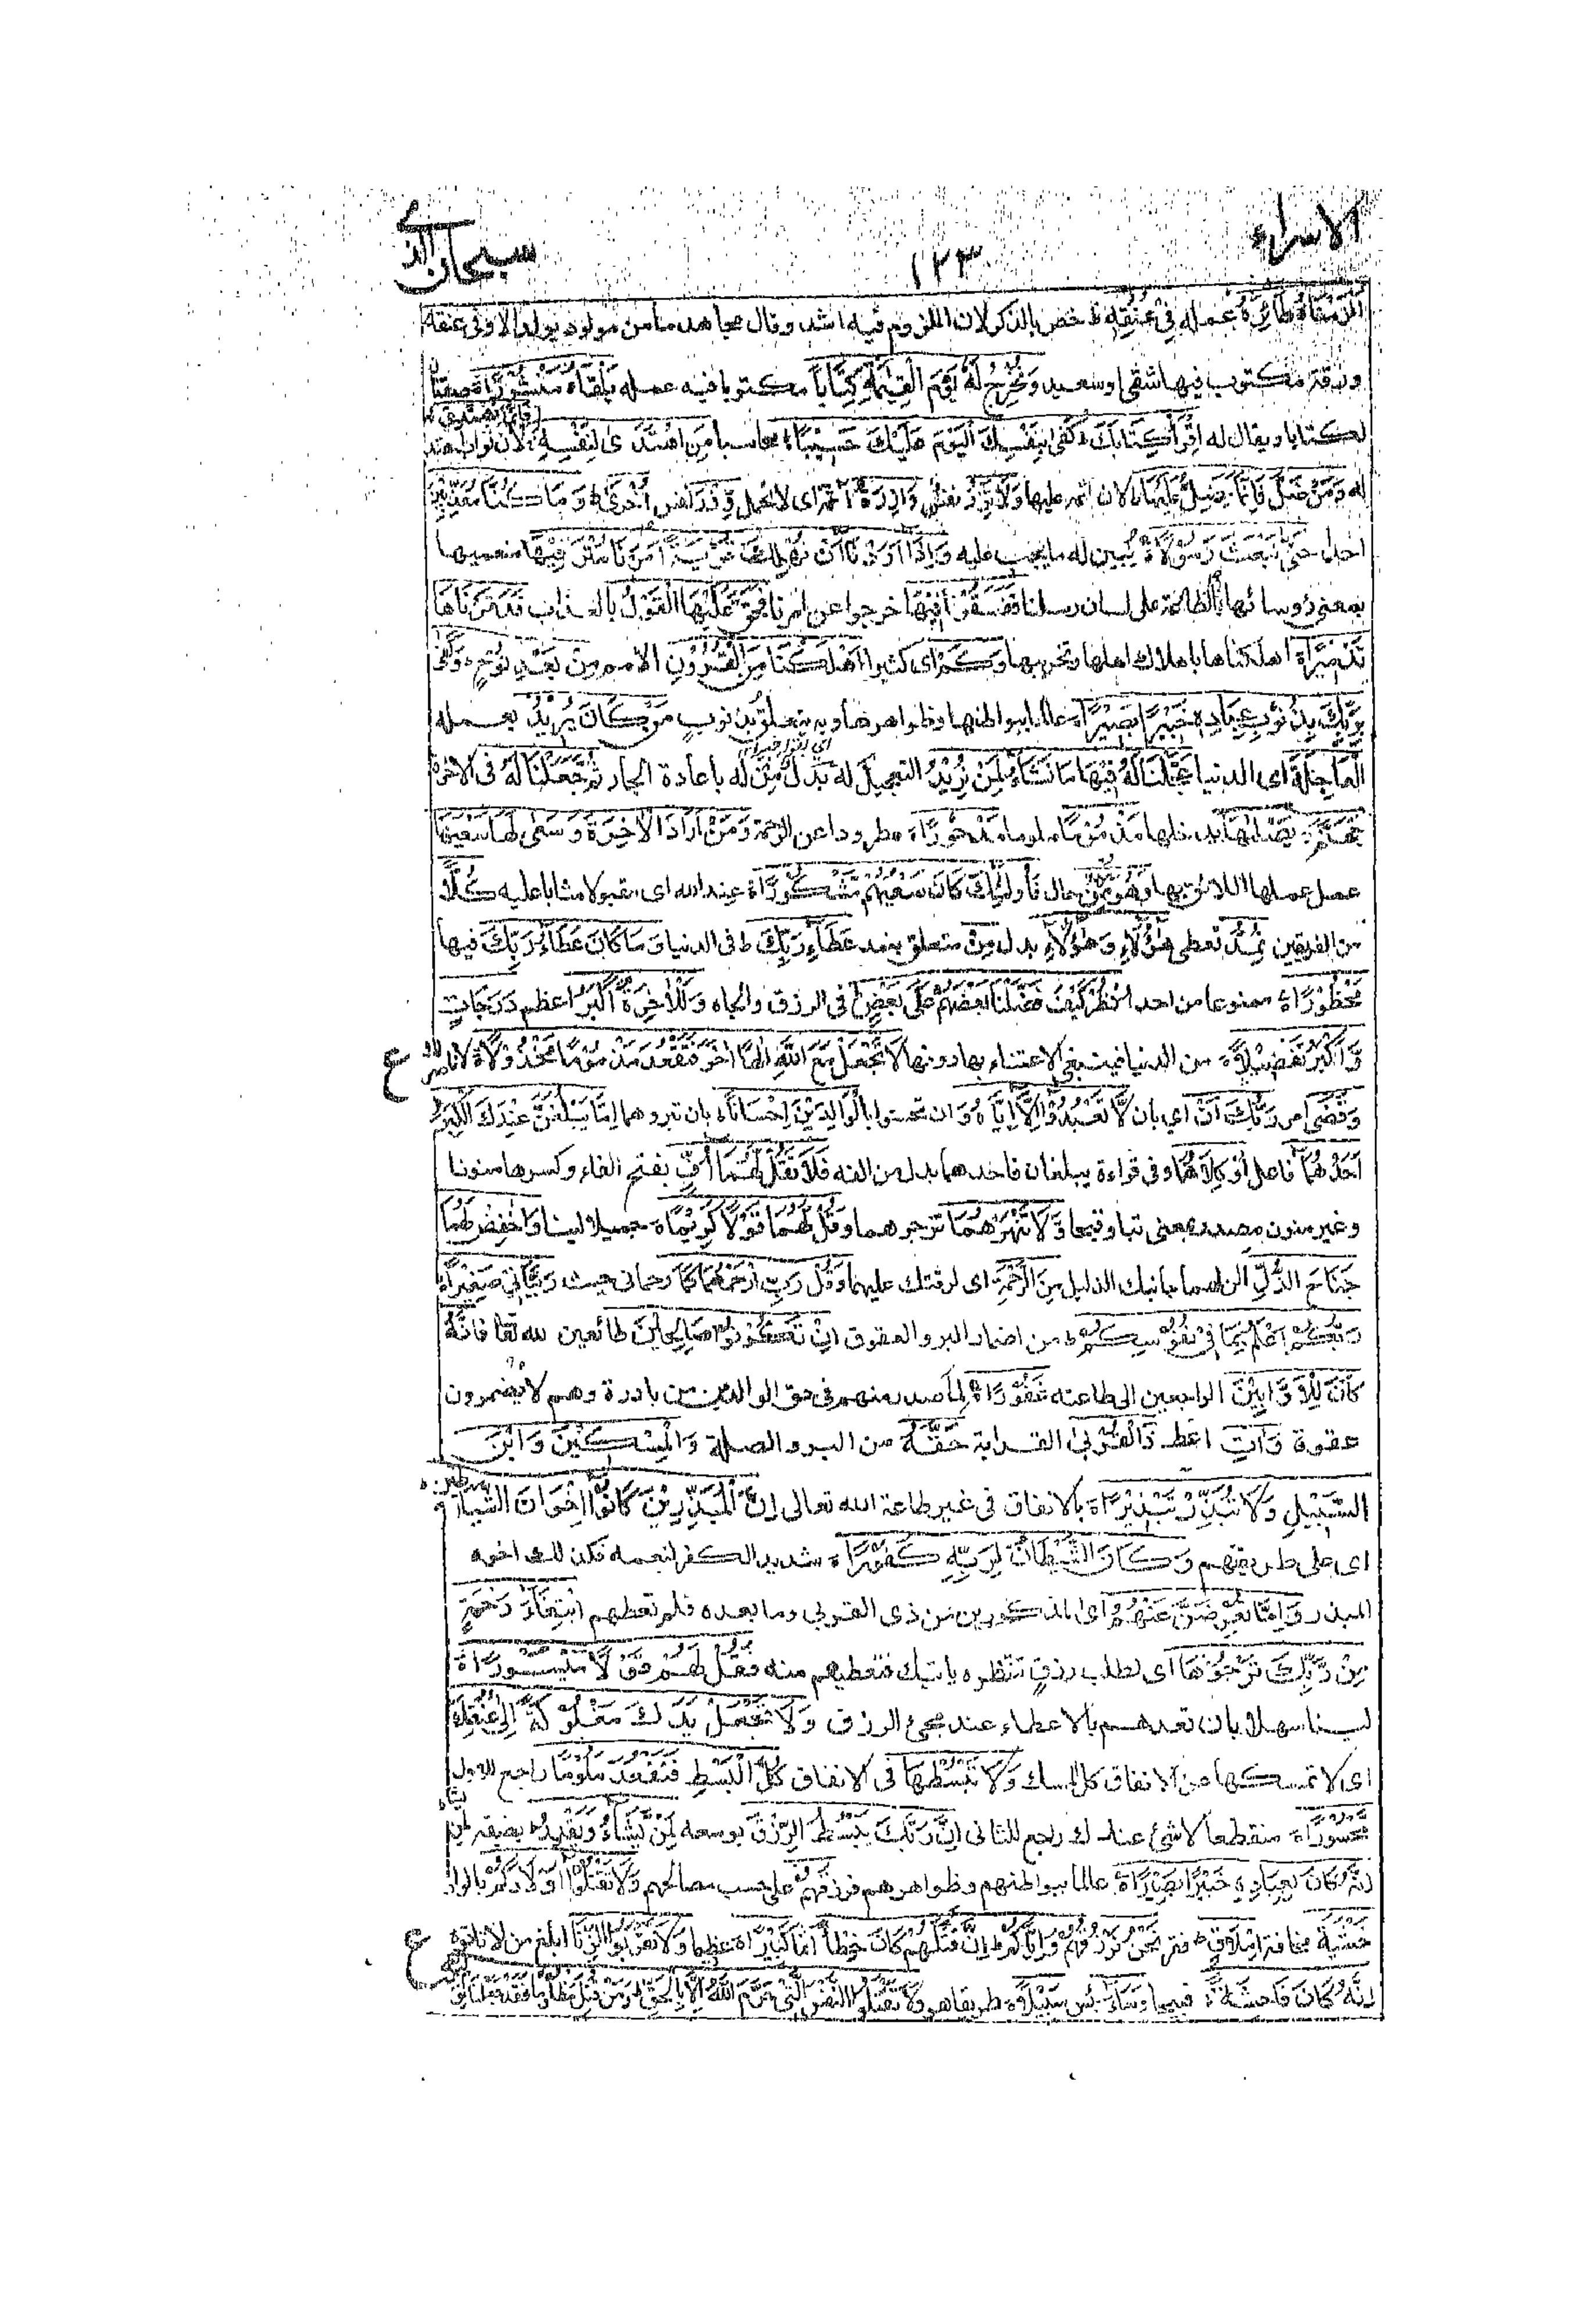 الاسراء
١٢٣
سبحان الذى
اَلْزَمْنَاهُ طَائِرَهُ عمله فِيْ عُنُقِهٖ ط خص بالذكر لان اللزوم فيه اشد وقال مجاهد ما من مولود يولد الا وفى عنقه
ورقة مكتوب فيها شقى او سعيد وَنُخْرِجُ لَهٗ يَوْمَ الْقِيٰمَةِ كِتَابًا مكتوبا فيه عمله يَلْقَاهُ مَنْشُوْرًا ه صفتان
لكتابا ويقال له اِقْرَأْ كِتَابَكَ ط كَفٰى بِنَفْسِكَ الْيَوْمَ عَلَيْكَ حَسِيْبًا ه محاسبا مَنِ اهْتَدٰى فَاِنَّمَا يَهْتَدِىْ لِنَفْسِهٖ لان ثواب اهتدائه
له وَمَنْ ضَلَّ فَاِنَّمَا يَضِلُّ عَلَيْهَا لان اثمه عليها وَلَا تَزِرُ نفس وَازِرَةٌ اثمة اى لا تحمل وِّزْرَ نفس اُخْرٰى ط وَمَا كُنَّا مُعَذِّبِيْنَ
احدا حَتّٰى نَبْعَثَ رَسُوْلًا ه يبين له ما يجب عليه وَاِذَا اَرَدْنَا اَنْ نُّهْلِكَ قَرْيَةً اَمَرْنَا مُتْرَفِيْهَا منعميها
بمعنى رؤسائها بالطاعة على لسان رسلنا فَفَسَقُوْا فِيْهَا خرجوا عن امرنا فَحَقَّ عَلَيْهَا الْقَوْلُ بالعذاب فَدَمَّرْنَاهَا
تَدْمِيْرًا ه اهلكناها باهلاك اهلها وتخريبها وَكَمْ اى كثيرا اَهْلَكْنَا مِنَ الْقُرُوْنِ الامم مِنْ بَعْدِ نُوْحٍ ط وَكَفٰى
بِرَبِّكَ بِذُنُوْبِ عِبَادِهٖ خَبِيْرًا بَصِيْرًا ه عالما ببواطنها وظواهرها وبه يتعلق بذنوب مَنْ كَانَ يُرِيْدُ بعمله
الْعَاجِلَةَ اى الدنيا عَجَّلْنَا لَهٗ فِيْهَا مَا نَشَاءُ لِمَنْ نُّرِيْدُ التعجيل له بدل من له باعادة الجار ثُمَّ جَعَلْنَا لَهٗ فى الاخرة
جَهَنَّمَ يَصْلٰهَا يدخلها مَذْمُوْمًا ملوما مَّدْحُوْرًا ه مطرودا عن الرحمة وَمَنْ اَرَادَ الْاٰخِرَةَ وَسَعٰى لَهَا سَعْيَهَا
عمل عملها اللائق بها وَهُوَ مُؤْمِنٌ حال فَاُولٰئِكَ كَانَ سَعْيُهُمْ مَّشْكُوْرًا ه عند الله اى مقبولا مثابا عليه كُلًّا
من الفريقين نُّمِدُّ نعطى هٰؤُلَاءِ وَهٰؤُلَاءِ بدل مِنْ متعلق بنمد عَطَاءِ رَبِّكَ ط فى الدنيا وَمَا كَانَ عَطَاءُ رَبِّكَ فيها
مَحْظُوْرًا ه ممنوعا من احد اُنْظُرْ كَيْفَ فَضَّلْنَا بَعْضَهُمْ عَلٰى بَعْضٍ ط فى الرزق والجاه وَلَلْاٰخِرَةُ اَكْبَرُ اعظم دَرَجَاتٍ
وَّاَكْبَرُ تَفْضِيْلًا ه من الدنيا فينبغى الاعتناء بها دونها لَا تَجْعَلْ مَعَ اللّٰهِ اِلٰهًا اٰخَرَ فَتَقْعُدَ مَذْمُوْمًا مَّخْذُوْلًا ه لا ناصر لك
ع
وَقَضٰى امر رَبُّكَ اَنْ اى بان لَّا تَعْبُدُوْا اِلَّا اِيَّاهُ وَان تحسنوا بِالْوَالِدَيْنِ اِحْسَانًا ط بان تبروهما اِمَّا يَبْلُغَنَّ عِنْدَكَ الْكِبَرَ
اَحَدُهُمَا فاعل اَوْ كِلَاهُمَا وفى قراءة يبلغان فاحدهما بدل من الفه فَلَا تَقُلْ لَّهُمَا اُفٍّ بفتح الفاء وكسرها منونا
وغير منون مصدر بمعنى تبا وقبحا وَّلَا تَنْهَرْهُمَا تزجرهما وَقُلْ لَّهُمَا قَوْلًا كَرِيْمًا ه جميلا لينا وَاخْفِضْ لَهُمَا
جَنَاحَ الذُّلِّ الن لهما جانبك الذليل مِنَ الرَّحْمَةِ اى لرقتك عليهما وَقُلْ رَّبِّ ارْحَمْهُمَا كَمَا رحمانى حيث رَبَّيَانِيْ صَغِيْرًا ه
رَبُّكُمْ اَعْلَمُ بِمَا فِيْ نُفُوْسِكُمْ ط من اضمار البر والعقوق اِنْ تَكُوْنُوْا صَالِحِيْنَ طائعين لله تعا فَاِنَّهٗ
كَانَ لِلْاَوَّابِيْنَ الراجعين الى طاعته غَفُوْرًا ه لما صدر منهم فى حق الوالدين من بادرة وهم لا يضمرون
عقوقا وَاٰتِ اعط ذَا الْقُرْبٰى القرابة حَقَّهٗ من البر والصلة وَالْمِسْكِيْنَ وَابْنَ
السَّبِيْلِ وَلَا تُبَذِّرْ تَبْذِيْرًا ه بالانفاق فى غير طاعة الله تعالى اِنَّ الْمُبَذِّرِيْنَ كَانُوْا اِخْوَانَ الشَّيَاطِيْنِ ط
اى على طريقتهم وَكَانَ الشَّيْطَانُ لِرَبِّهٖ كَفُوْرًا ه شديد الكفر لنعمه فكذلك اخوه
المبذر وَاِمَّا تُعْرِضَنَّ عَنْهُمُ اى المذكورين من ذى القربى وما بعده فلم تعطهم ابْتِغَاءَ رَحْمَةٍ
مِّنْ رَّبِّكَ تَرْجُوْهَا اى لطلب رزق تنتظره ياتيك فتعطيهم منه فَقُلْ لَّهُمْ قَوْلًا مَّيْسُوْرًا ه
لينا سهلا بان تعدهم بالاعطاء عند مجئ الرزق وَلَا تَجْعَلْ يَدَكَ مَغْلُوْلَةً اِلٰى عُنُقِكَ
اى لا تمسكها عن الانفاق كل المسك وَلَا تَبْسُطْهَا فى الانفاق كُلَّ الْبَسْطِ فَتَقْعُدَ مَلُوْمًا راجع للاول
مَّحْسُوْرًا ه منقطعا لا شئ عندك راجع للثانى اِنَّ رَبَّكَ يَبْسُطُ الرِّزْقَ يوسعه لِمَنْ يَّشَاءُ وَيَقْدِرُ ط يضيقه لمن يشاء
اِنَّهٗ كَانَ بِعِبَادِهٖ خَبِيْرًا بَصِيْرًا ه عالما ببواطنهم وظواهرهم فرزقهم على حسب مصالحهم وَلَا تَقْتُلُوْا اَوْلَادَكُمْ بالواد
خَشْيَةَ مخافة اِمْلَاقٍ ط فقر نَحْنُ نَرْزُقُهُمْ وَاِيَّاكُمْ ط اِنَّ قَتْلَهُمْ كَانَ خِطْأً اثما كَبِيْرًا ه عظيما وَلَا تَقْرَبُوا الزِّنَا ابلغ من لا تاتوه
ع
اِنَّهٗ كَانَ فَاحِشَةً ط قبيحا وَسَاءَ بئس سَبِيْلًا ه طريقا هو وَلَا تَقْتُلُوا النَّفْسَ الَّتِيْ حَرَّمَ اللّٰهُ اِلَّا بِالْحَقِّ ط وَمَنْ قُتِلَ مَظْلُوْمًا فَقَدْ جَعَلْنَا